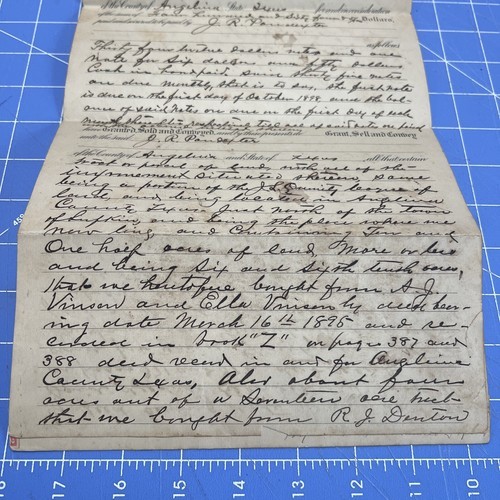 of the County of Angelina State Texas for and in consideration
of the sum of Four Hundred and Sixty Dollars
J. R. Pancoster
as follows
Thirty four twelve dollars notes and one
note for Six dollars and fifty Dollars
Cash in hand paid, Said thirty five notes
are due Monthly, that is to say, the first note
is due on the first day of October 1898 and the bal-
ance of said notes are due on the first day of each
month
have Granted, Sold and Conveyed Grant, Sell and Convey
J. R. Pancoster
of the County of Angelina and State of Texas all that certain
tract of land with all the
improvements Situated
being a portion of the J. L. Quinalty league of
land, and being located in Angelina
County Texas Just north of the town
of Lufkin and being the place where we
now live, and Containing Ten and
One half acres of land, More or less
and being Six and Sixth tenth acres,
that we heretofore bought from A. J.
Vinson and Ella Vinson by deed bear-
ing date March 16th 1895 and re-
corded in book "Z" on pages 387 and
388 deed record in and for Angelina
County Texas, Also about four
acres out of a Seventeen acre
that we bought from R. J. Denton
10 11 12 13 14 15 16 17 18